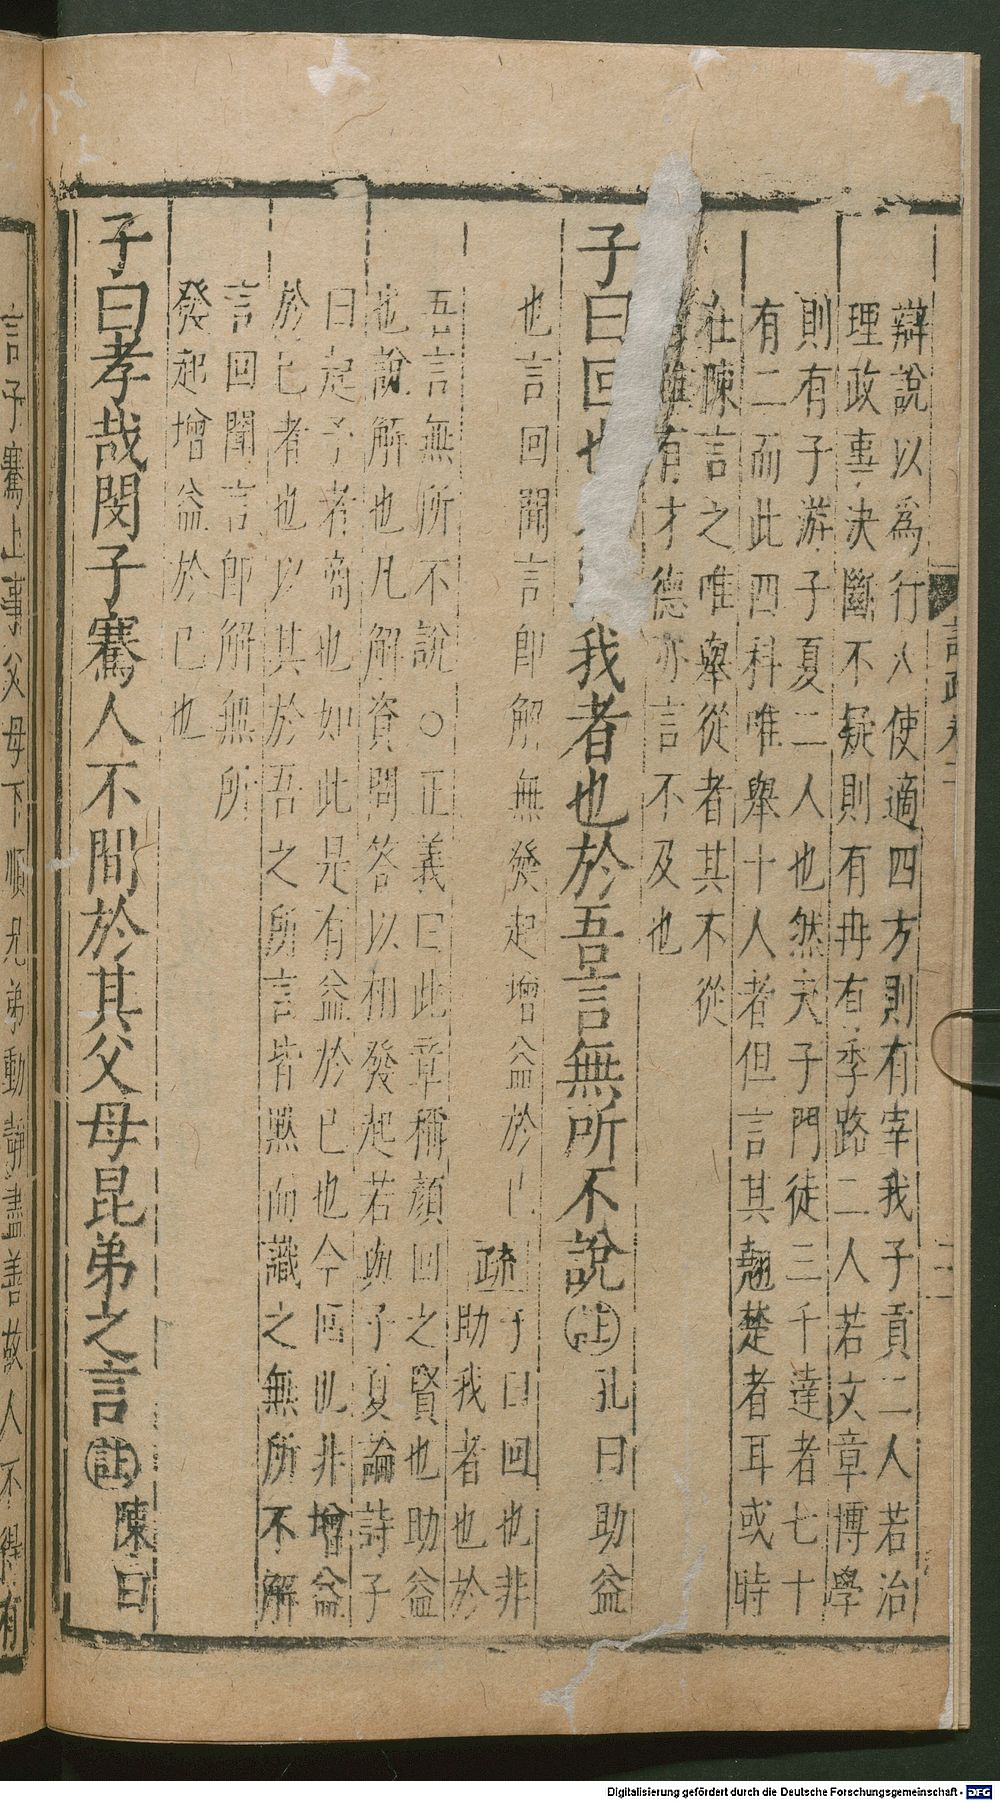 辯說以為行人使適四方則有宰我子貢二人若治
理政事決斷不疑則有冉有季路二人若文章博學
則有子游子夏二人也然夫子門徒三千達者七十
有二而此四科唯舉十人者但言其翹楚者耳或時
在陳言之唯舉從者其不從
有才德亦言不及也
子曰回也我者也於吾言無所不說註孔曰助益
也言回聞言即解無發起增益於己疏子曰回也非
助我者也於
吾言無所不說○正義曰此章稱顏回之賢也助益
也說解也凡解資問答以相發起若與子夏論詩子
曰起予者商也如此是有益於己也今回也非增益
於己者也以其於吾之所言皆默而識之無所不解
言回聞言即解無所
發起增益於己也
子曰孝哉閔子騫人不間於其父母昆弟之言註陳曰
言子騫上事父母下順兄弟動靜盡善故人不得有
Digitalisierung gefördert durch die Deutsche Forschungsgemeinschaft - DFG